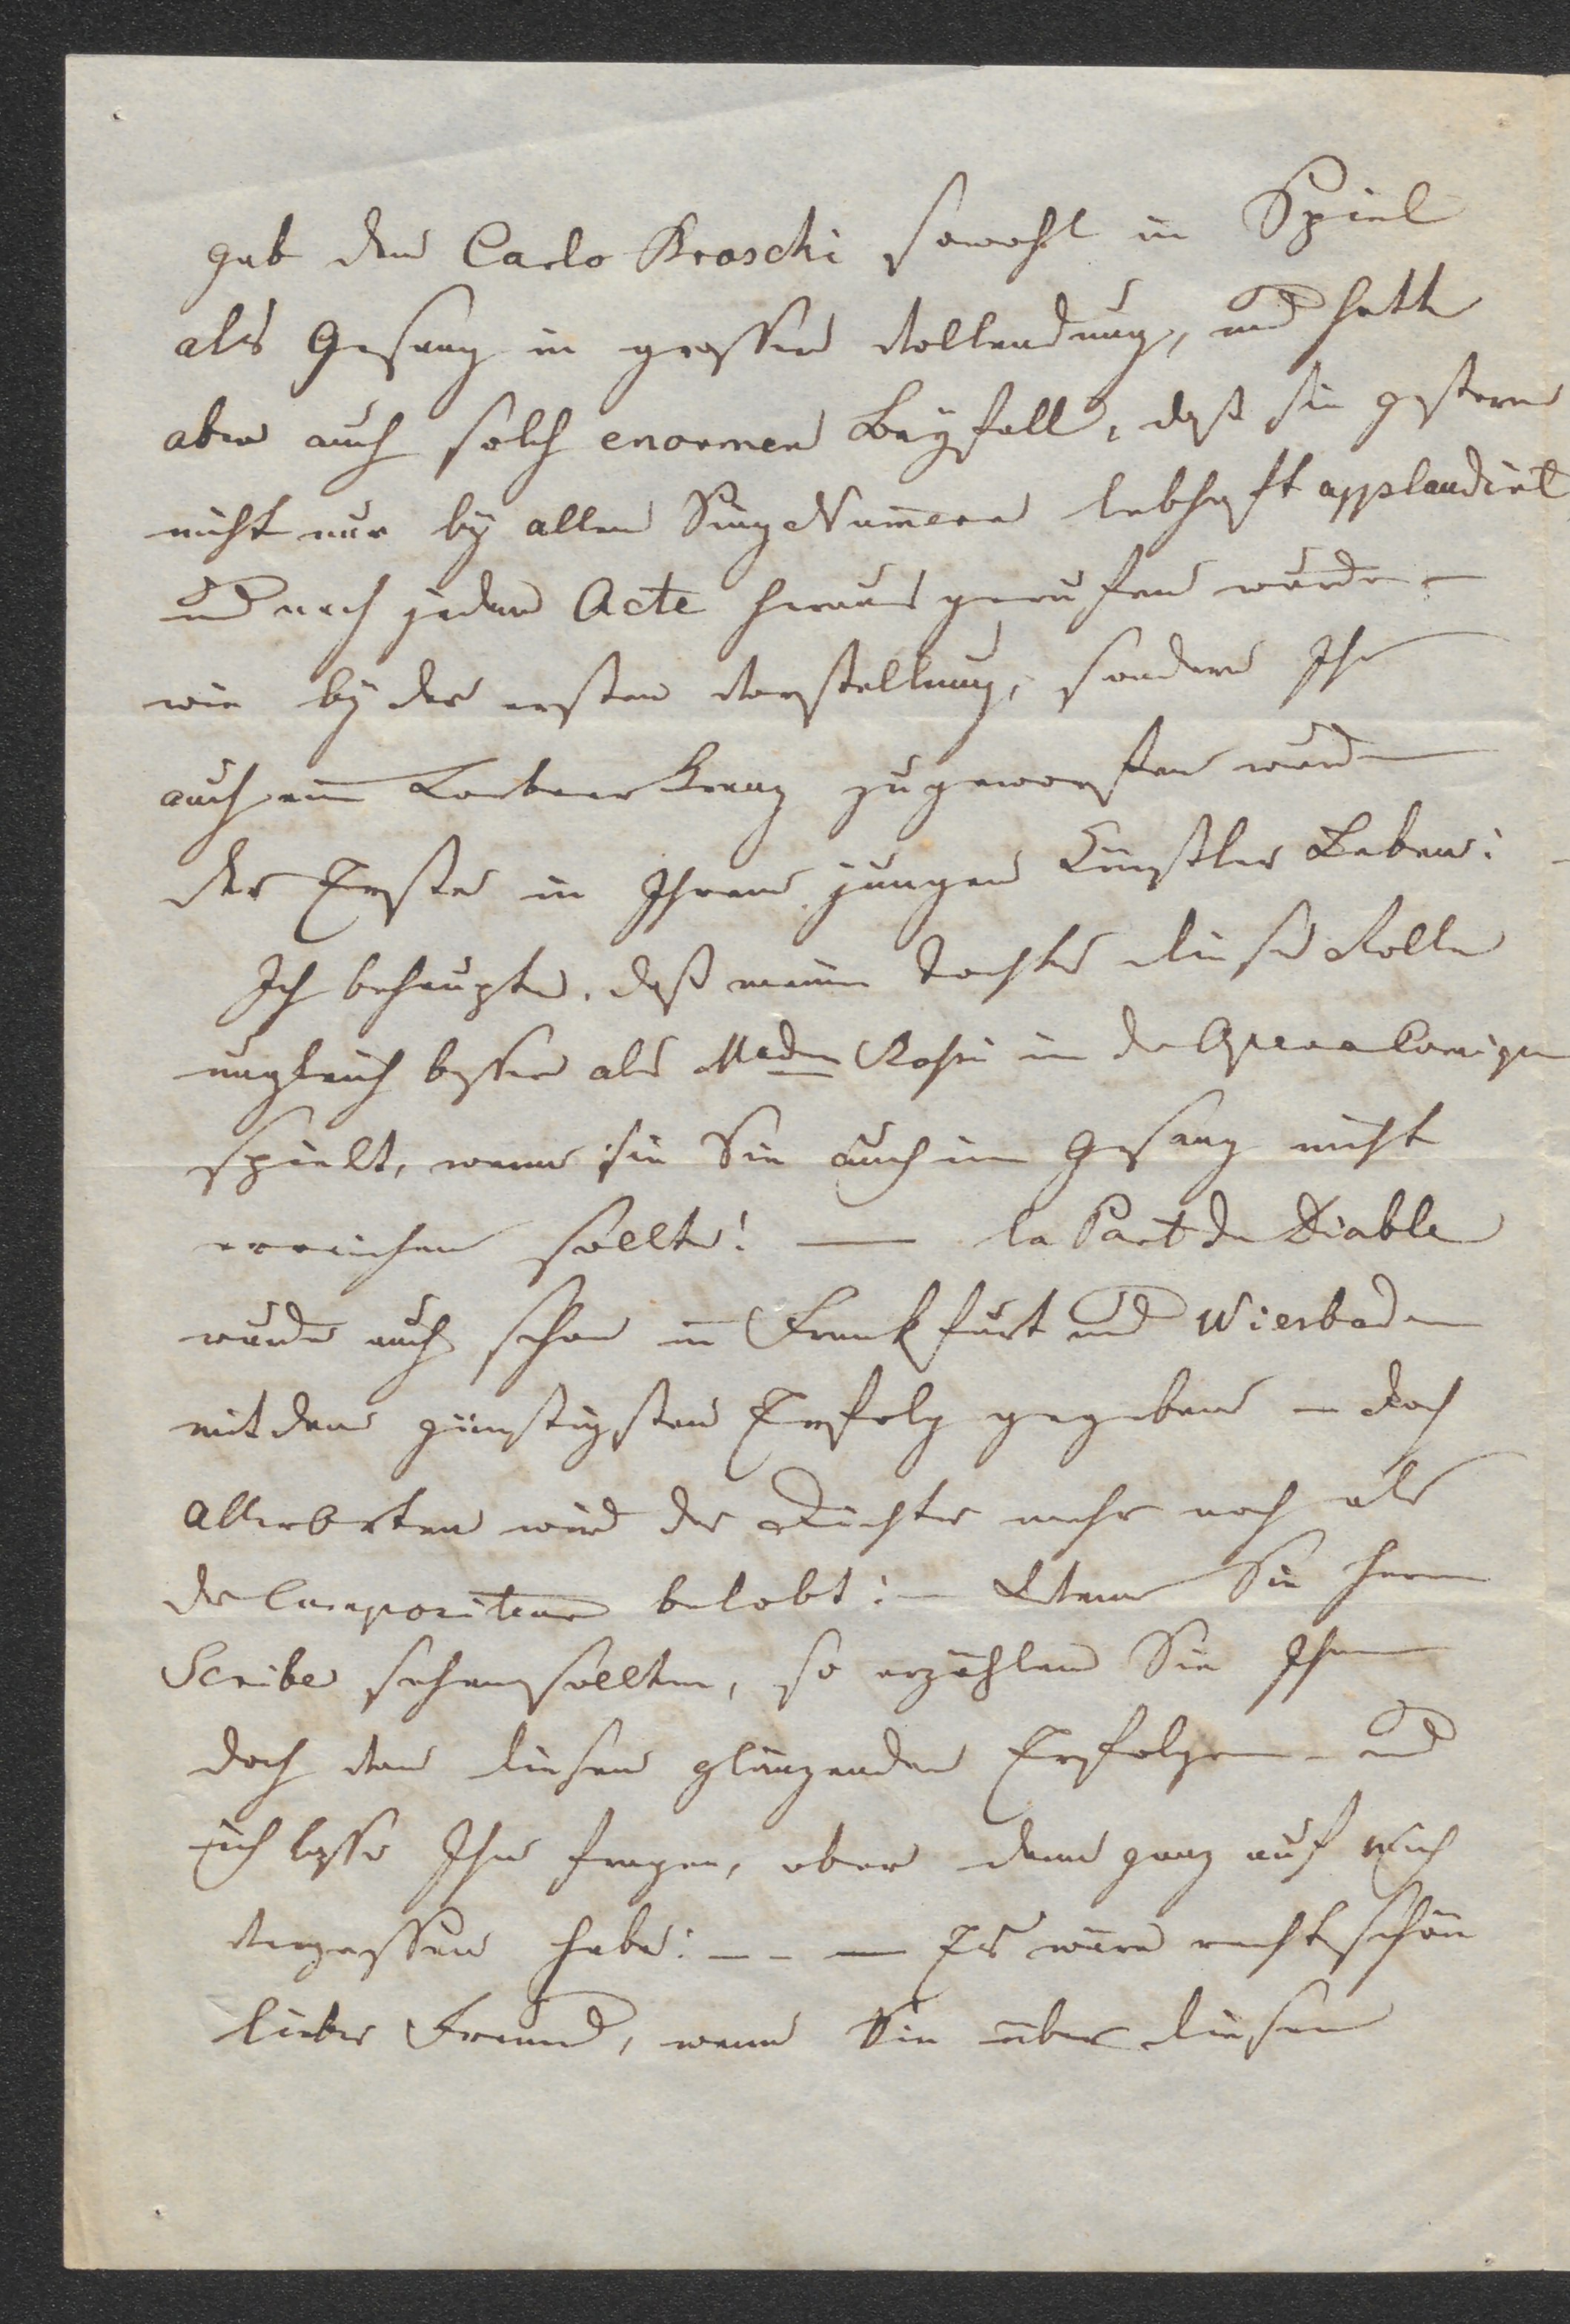 gab den Carlo Broschi sowohl in Spiel
als Gesang in grosser Vollendung, und hatte
aber auch solch enormen Beyfall, daß sie gestern
nicht nur bey allen Sing Numern lebhaft applaudirt
und nach jedem Acte heraus gerufen wurde –
wie bey der ersten Vorstellung, sondern Ihr
auch ein Lorbeer Kranz zugeworfen wurde
der Erste in Ihrem jungen Künstler Leben! –
Ich behaupte, daß meine Tochter diese Rolle
ungleich besser als Madm Rossi in der Opera Comique
spielt, wenn sie Sie auch im Gesang nicht
erreichen sollte! — la Part du Diable
wurde auch schon in Frankfurt und Wiesbaden
mit dem günstigsten Erfolg gegeben – doch
aller Orten wird der Dichter mehr noch als
der Compositeur belobt! – Wenn Sie Herrn
Scribe sehen sollten, so erzählen Sie Ihm
doch von diesen glänzenden Erfolgen – und
ich lasse Ihn fragen, ob er denn ganz auf mich
vergessen habe! – – — Es wäre recht schön
lieber Freund, wenn Sie über diesen